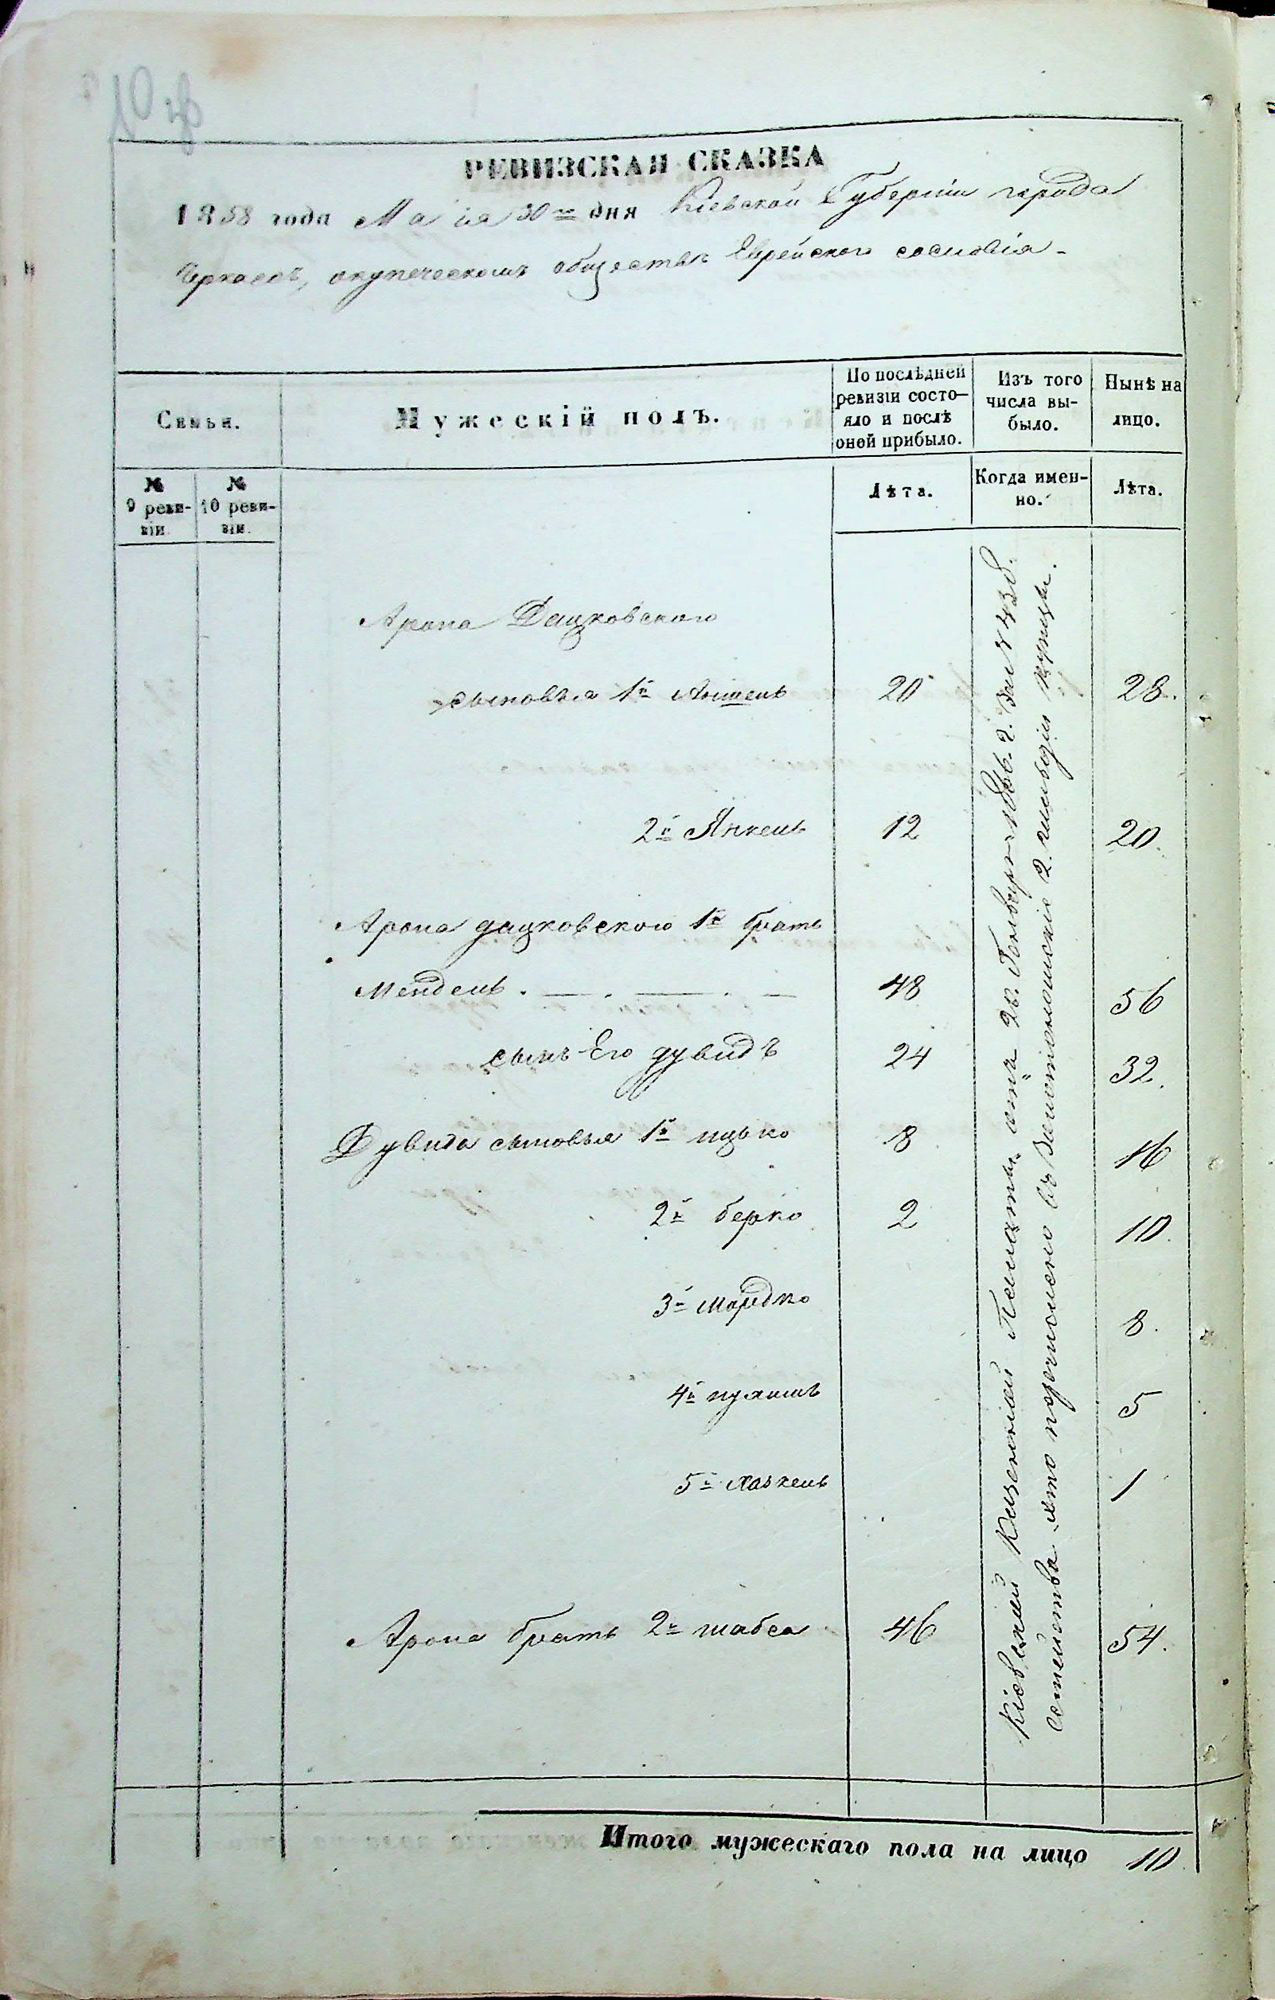 РЕВИЗСКАЯ СКАЗКА
1858 года Маія 30го дня Кіевской Губерніи города
Черкасъ, окупеческомъ обществѣ Еврейского сословія
Семьи.
Мужескій полъ.
По послѣдней ревизіи состо-
яло и послѣ оней прибыло.
Изъ того числа вы-
было.
Нынѣ на лицо.
№ 9 реви-
зіи.
№ 10 реви-
зіи.
Лѣта.
Когда имен-
но.
Лѣта.
Арона Дацковского
сыновья 1й Аншель 20 28.
2й Янкель 12 20.
Арона дацковского 1й братъ
Мендель 48 56
сынъ Его дувидъ 24 32.
Дувида сыновья 1й ицько 8 16
2й берко 2 10.
3й мордко 8.
4й 5
5й хаскель 1
Арона братъ 2й шабса 46 54.
Кіевской Казенной Палаты отъ 20. Генваря г. за № 438.
семейство это перечислено въ 2. гильдіи купцы.
Итого мужескаго пола на лицо 10